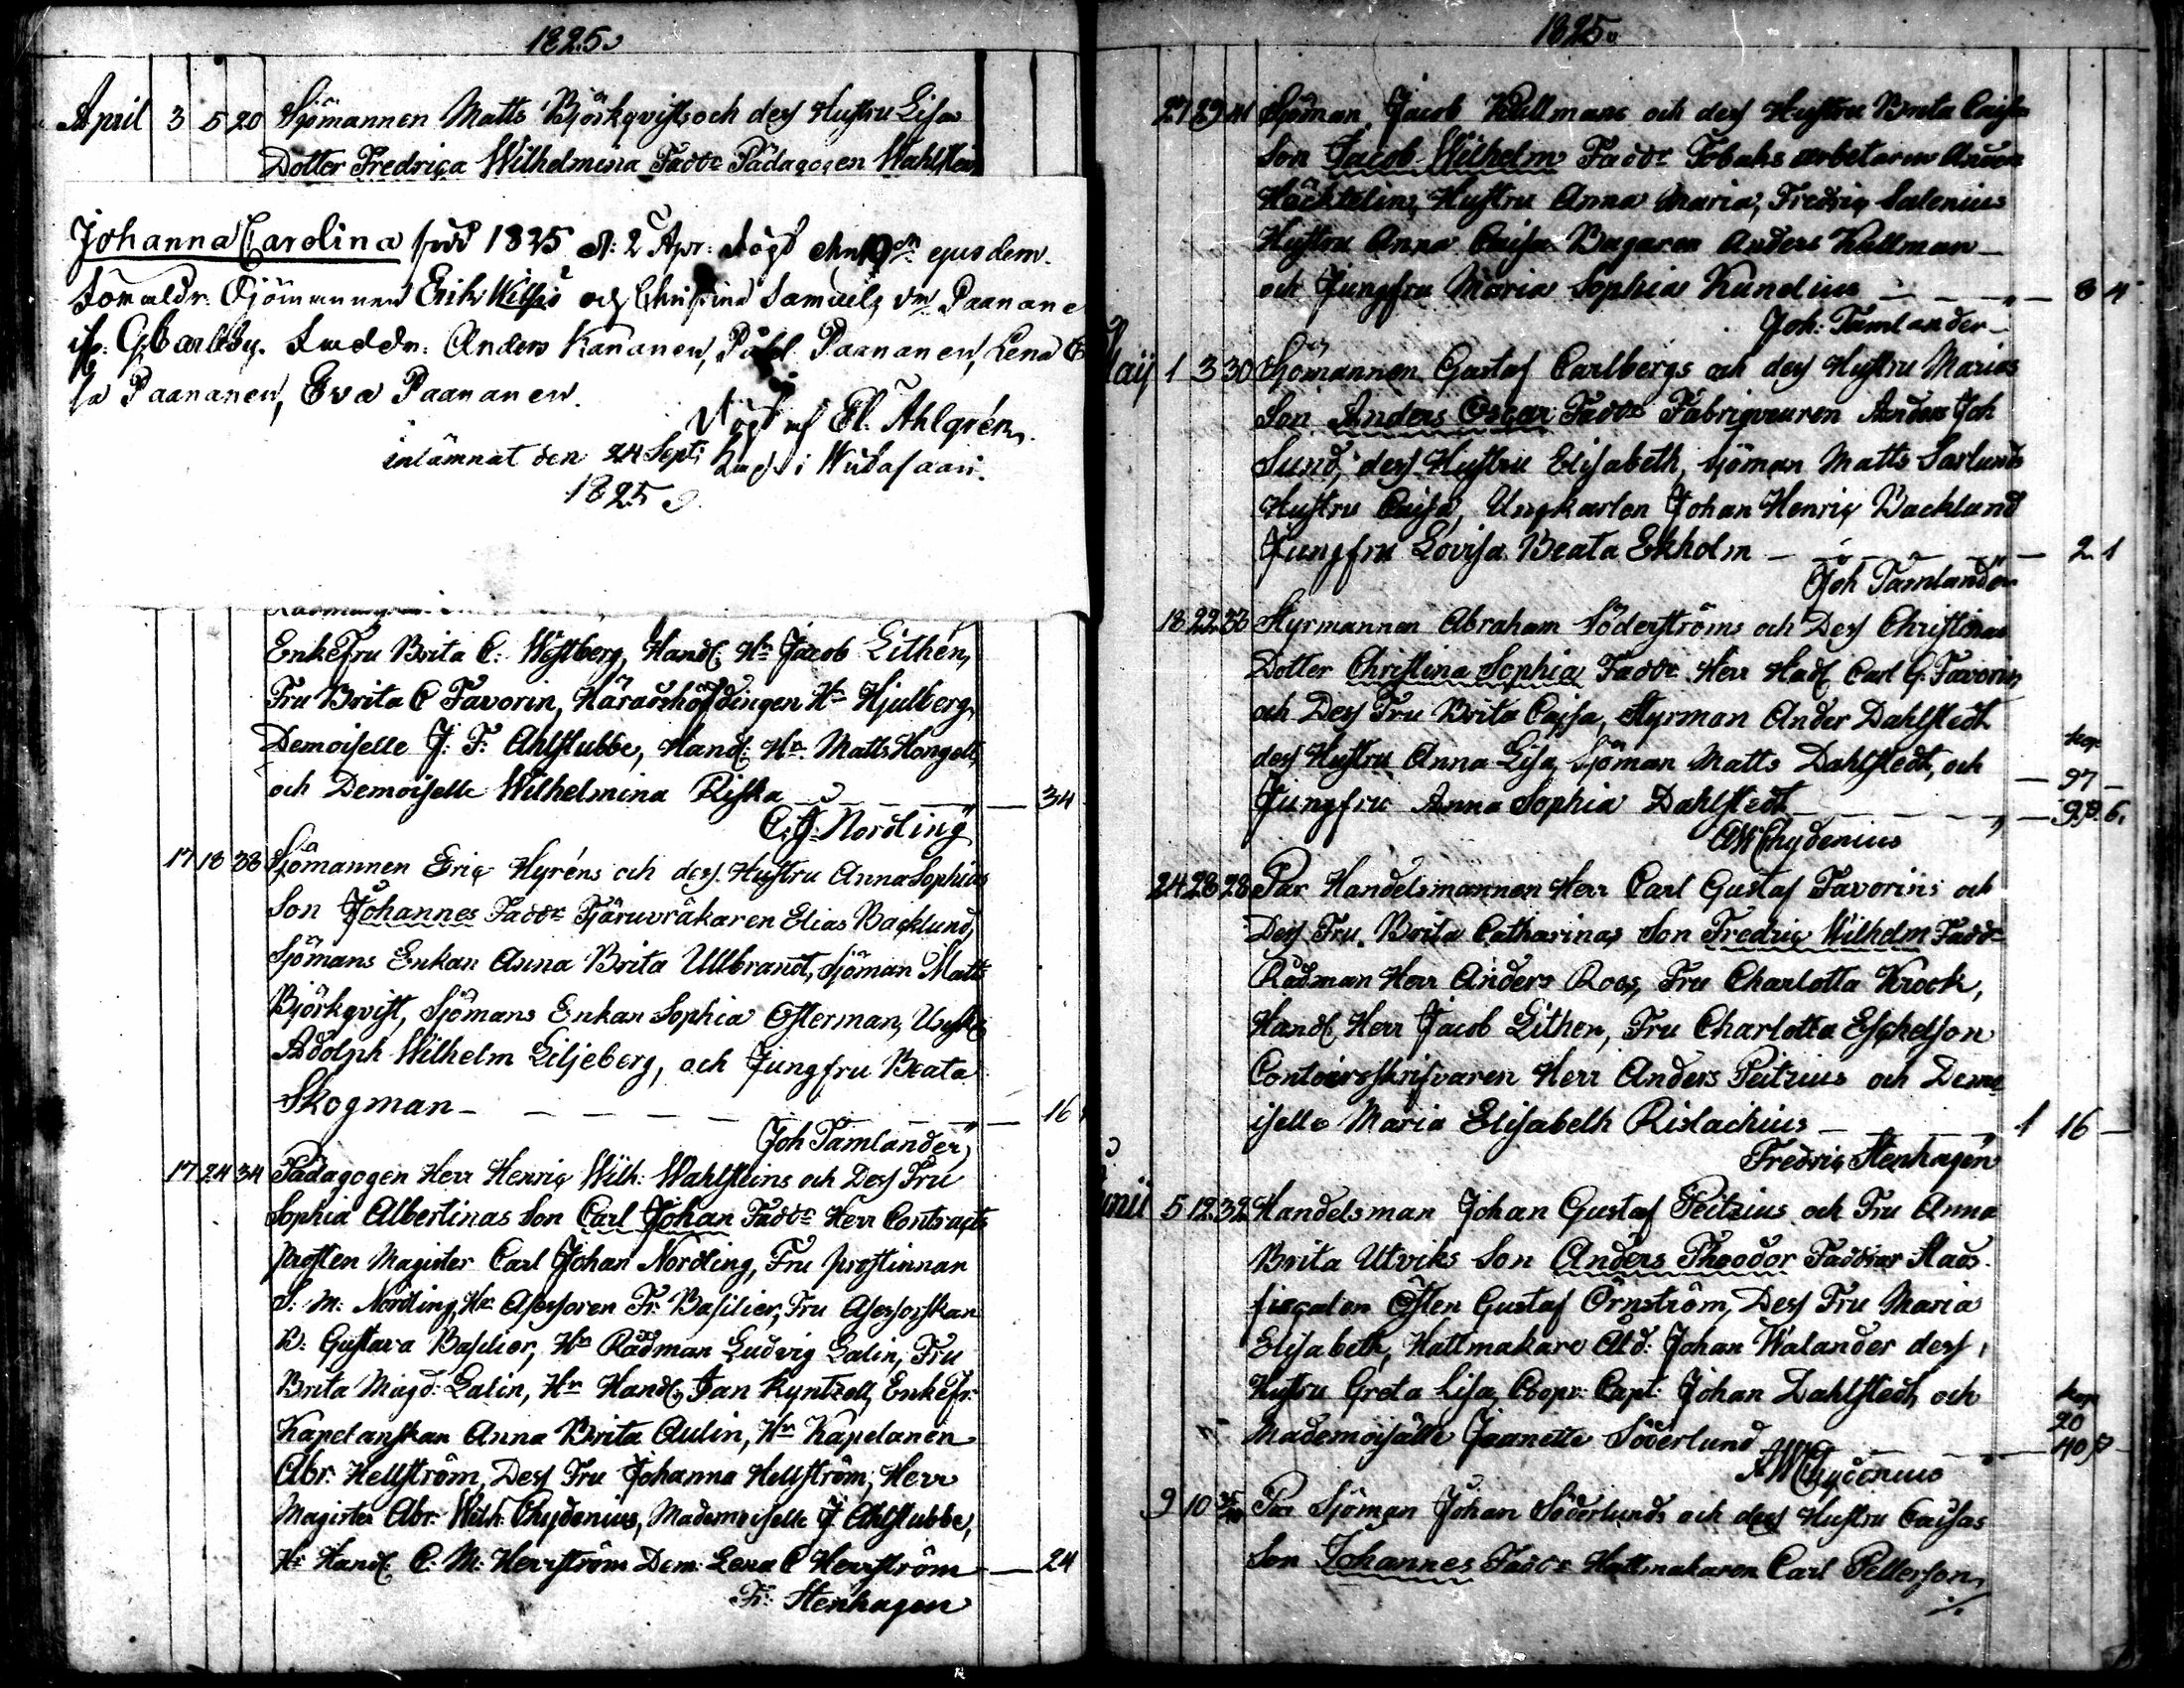 1825
April 3 5 20 Sjömannen Matts Björkqvists och dess Hustru Lisas
Dotter Fredrica Wilhelmina Faddr Pädagogen Wahlstein
Johanna Carolina född 1825 d: 2 Apr: döpt ejusdem.
Föräldr: Sjömannen Erik och Christina Samuels dr Paanane
if: Gbarleby. Faddr: Anders Kananen, Påhl Paananen, Lena
sa Paananen, Eva Paananen.
Döpt af El. Ahlgrén
inlämnat den 24 Sept: Cap: i Wiitasaari.
1825
Enkefru Brita C: Westberg, Handl: Hr Jacob Lithén,
Fru Brita C Favorin, Häradshöfdingen Hr Hjulberg,
Demoiselle J: F: Ahlstubbe, Handl: Hr Matts Hongell,
och Demoiselle Wilhelmina Riska — 34
C: J: Nordling
17 18 38 Sjömannen Eric Hyréns och dess Hustru Anna Sophias
Son Johannes Faddr Tjäruvräkaren Elias Backlund,
Sjömans Enkan Anna Brita Ullbrandt, Sjöman Matts
Björkqvist, Sjömans Enkan Sophia Österman, Ungk:
Adolph Wilhelm Liljeberg, och Jungfru Beata
Skogman — 16
Joh Tamlander
17 24 34 Pädagogen Herr Henric Wilh: Wahlsteins och Dess Fru
Sophia Albertinas Son Carl Johan Faddr Herr Contracts
prosten Magister Carl Johan Nordling, Fru prostinnan
S: M: Nordling, Hr Assessoren Fr: Basilier, Fru Assessorskan
B: Gustava Basilier, Hr Rådman Ludvig Galin, Fru
Brita Magd: Galin, Hr Handl: Jan Kyntzell, Enkefr:
Kapelanskan Anna Brita Aulin, Hr Kapelanen
Abr: Hellström, Dess Fru Johanna Hellström, Herr
Magister Abr: Wilh: Chydenius, Mademoiselle J Ahlstubbe,
Hr Handl: C: M: Herrström Dem: Lena C Herrström — 24
Fr: Stenhagen
1825
27 29 41 Sjöman Jacob Kullmans och dess Hustru Brita Caisas
Son Jacob Wilhelm Faddr Tobaks arbetaren
Häcktelin, Hustru Anna Maria, Fredric Salenius
Hustru Anna Caisa Bagaren Anders Kullman
och Jungfru Maria Sophia Kundius — 3 4
Joh: Tamlander
Maij 1 3 30 Sjömannen Gustaf Carlbergs och dess Hustru Marias
Son Anders Oscar Faddr Fabriqveuren Anders Joh
Sund, dess Hustru Elisabeth, Sjöman Matts Sarlunds
Hustru Caisa, Ungkarlen Johan Henric Backlund
Jungfru Lovisa Beata Ekholm — 2 1
Joh Tamlander
18 22 33 Styrmannen Abraham Söderströms och Dess Christinas
Dotter Christina Sophia Faddr Herr Hadl Carl G: Favorin
och Dess Fru Brita Cajsa, Styrman Ander Dahlstedt
dess Hustru Anna Lisa, Sjöman Matts Dahlstedt, och
kop
97
Jungfru Anna Sophia Dahlstedt
AWChydenius
24 28 28 Par Handelsmannen Herr Carl Gustaf Favorins och
Dess Fru Brita Catharinas Son Fredric Wilhelm Faddr
Rådman Herr Anders Roos, Fru Charlotta Krook,
Handl Herr Jacob Lithen, Fru Charlotta Eschelson
Contoirsskrifvaren Herr Anders Peitzius och Demo
iselle Maria Elisabeth Rislachius — 1 16
Fredric Stenhagen
Junii 5 12 32 Handelsman Johan Gustaf Peitzius och Fru Anna
Brita Utviks Son Anders Theodor Faddrar Stads
fiscalen Östen Gustaf Örnström, Dess Fru Maria
Elisabeth, Hattmakare Åld: Johan Walander dess
Hustru Greta Lisa, Coopv: Capt: Johan Dahlstedt och
kop
20
Mademoisälle Jeanette Söderlund — 40
AWChydenius
9 10 Par Sjöman Johan Söderlunds och dess Hustru Caisas
Son Johannes Faddr Hattmakaren Carl Petterson,